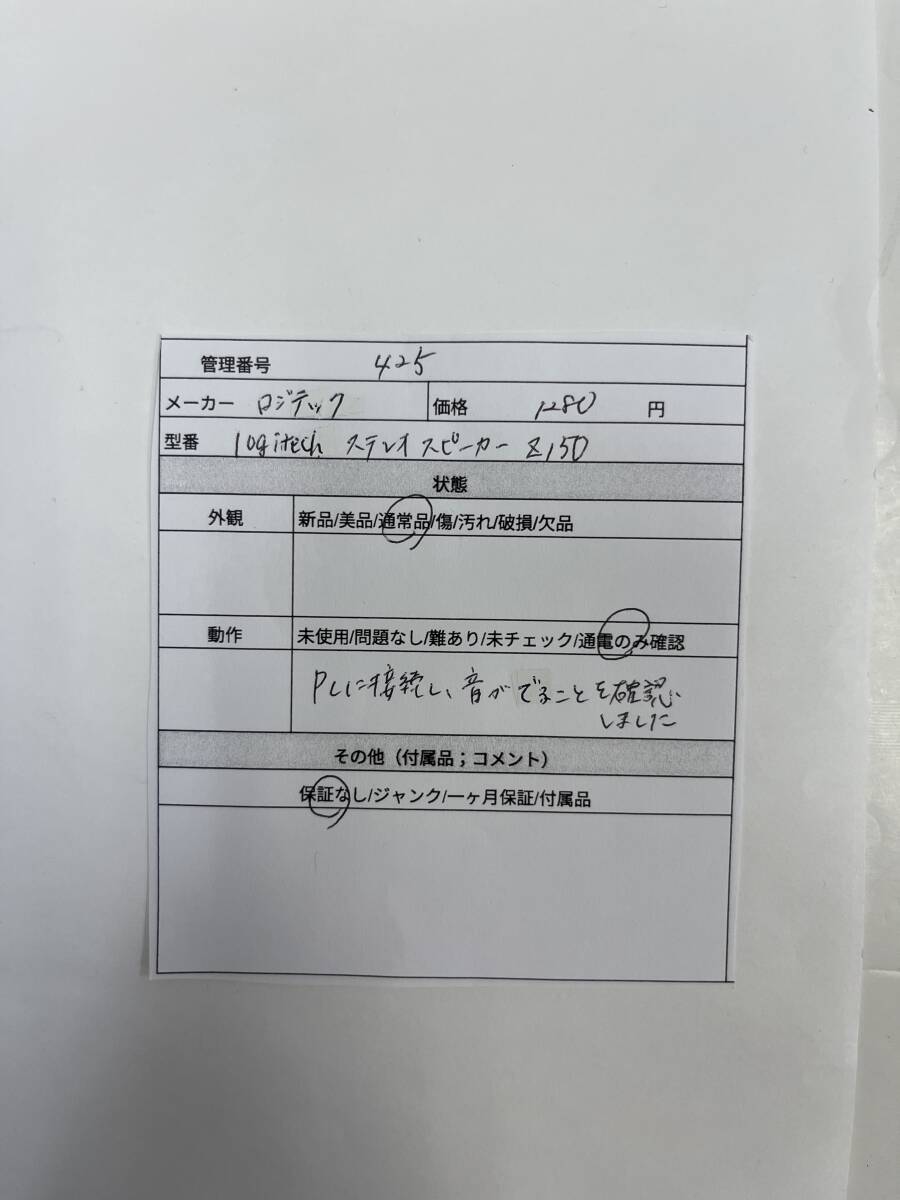 管理番号 425
メーカー ロジテック 価格 1280 円
型番 logitech ステレオスピーカー Z150
状態
外観 新品/美品/通常品/傷/汚れ/破損/欠品
動作 未使用/問題なし/難あり/未チェック/通電のみ確認
PCに接続し、音がでることを確認
しました
その他（付属品；コメント）
保証なし/ジャンク/一ヶ月保証/付属品